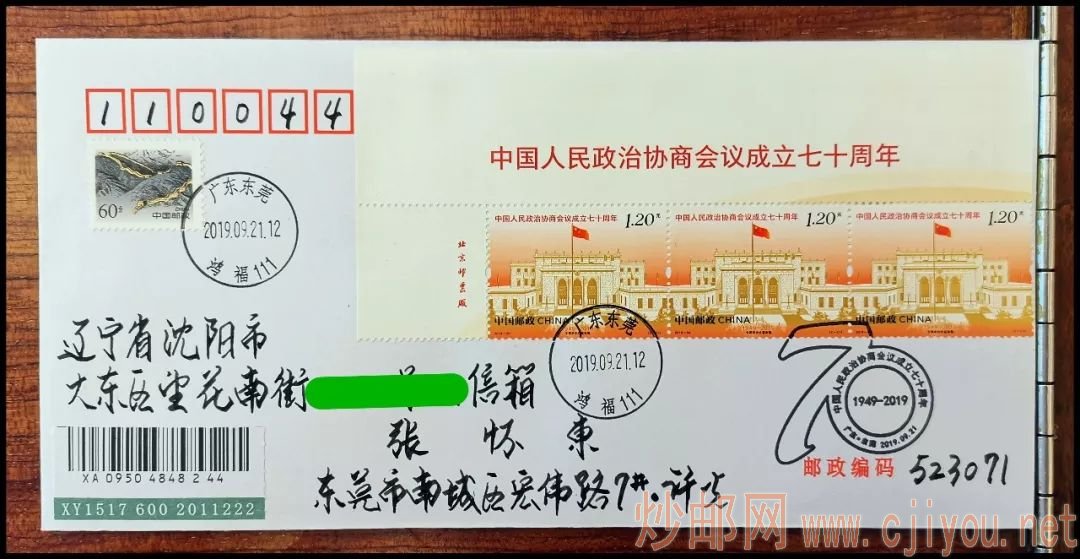 110044
60分
中国邮政
广东东莞
2019.09.21.12
鸿福111
中国人民政治协商会议成立七十周年
中国人民政治协商会议成立七十周年 1.20元
中国人民政治协商会议成立七十周年 1.20元
中国人民政治协商会议成立七十周年 1.20元
北京邮票厂
中国邮政 CHINA
中国邮政 CHINA
中国邮政 CHINA
广东东莞
2019.09.21.12
鸿福111
辽宁省沈阳市
大东区望花南街 信箱
张怀东
70
中国人民政治协商会议成立七十周年
1949-2019
2019.09.21
XA 0950 4848 2 44
XY1517 600 2011222
邮政编码 523071
东莞市南城区宏伟路7#.许
炒邮网 www.cjiyou.net